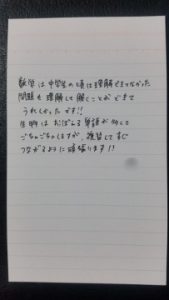 数学は中学生の頃は理解できなかった
問題も理解して解くことができて
うれしかったです!!
生物は 単語が多くて
ごちゃごちゃしますが、復習して
つながるように頑張ります!!